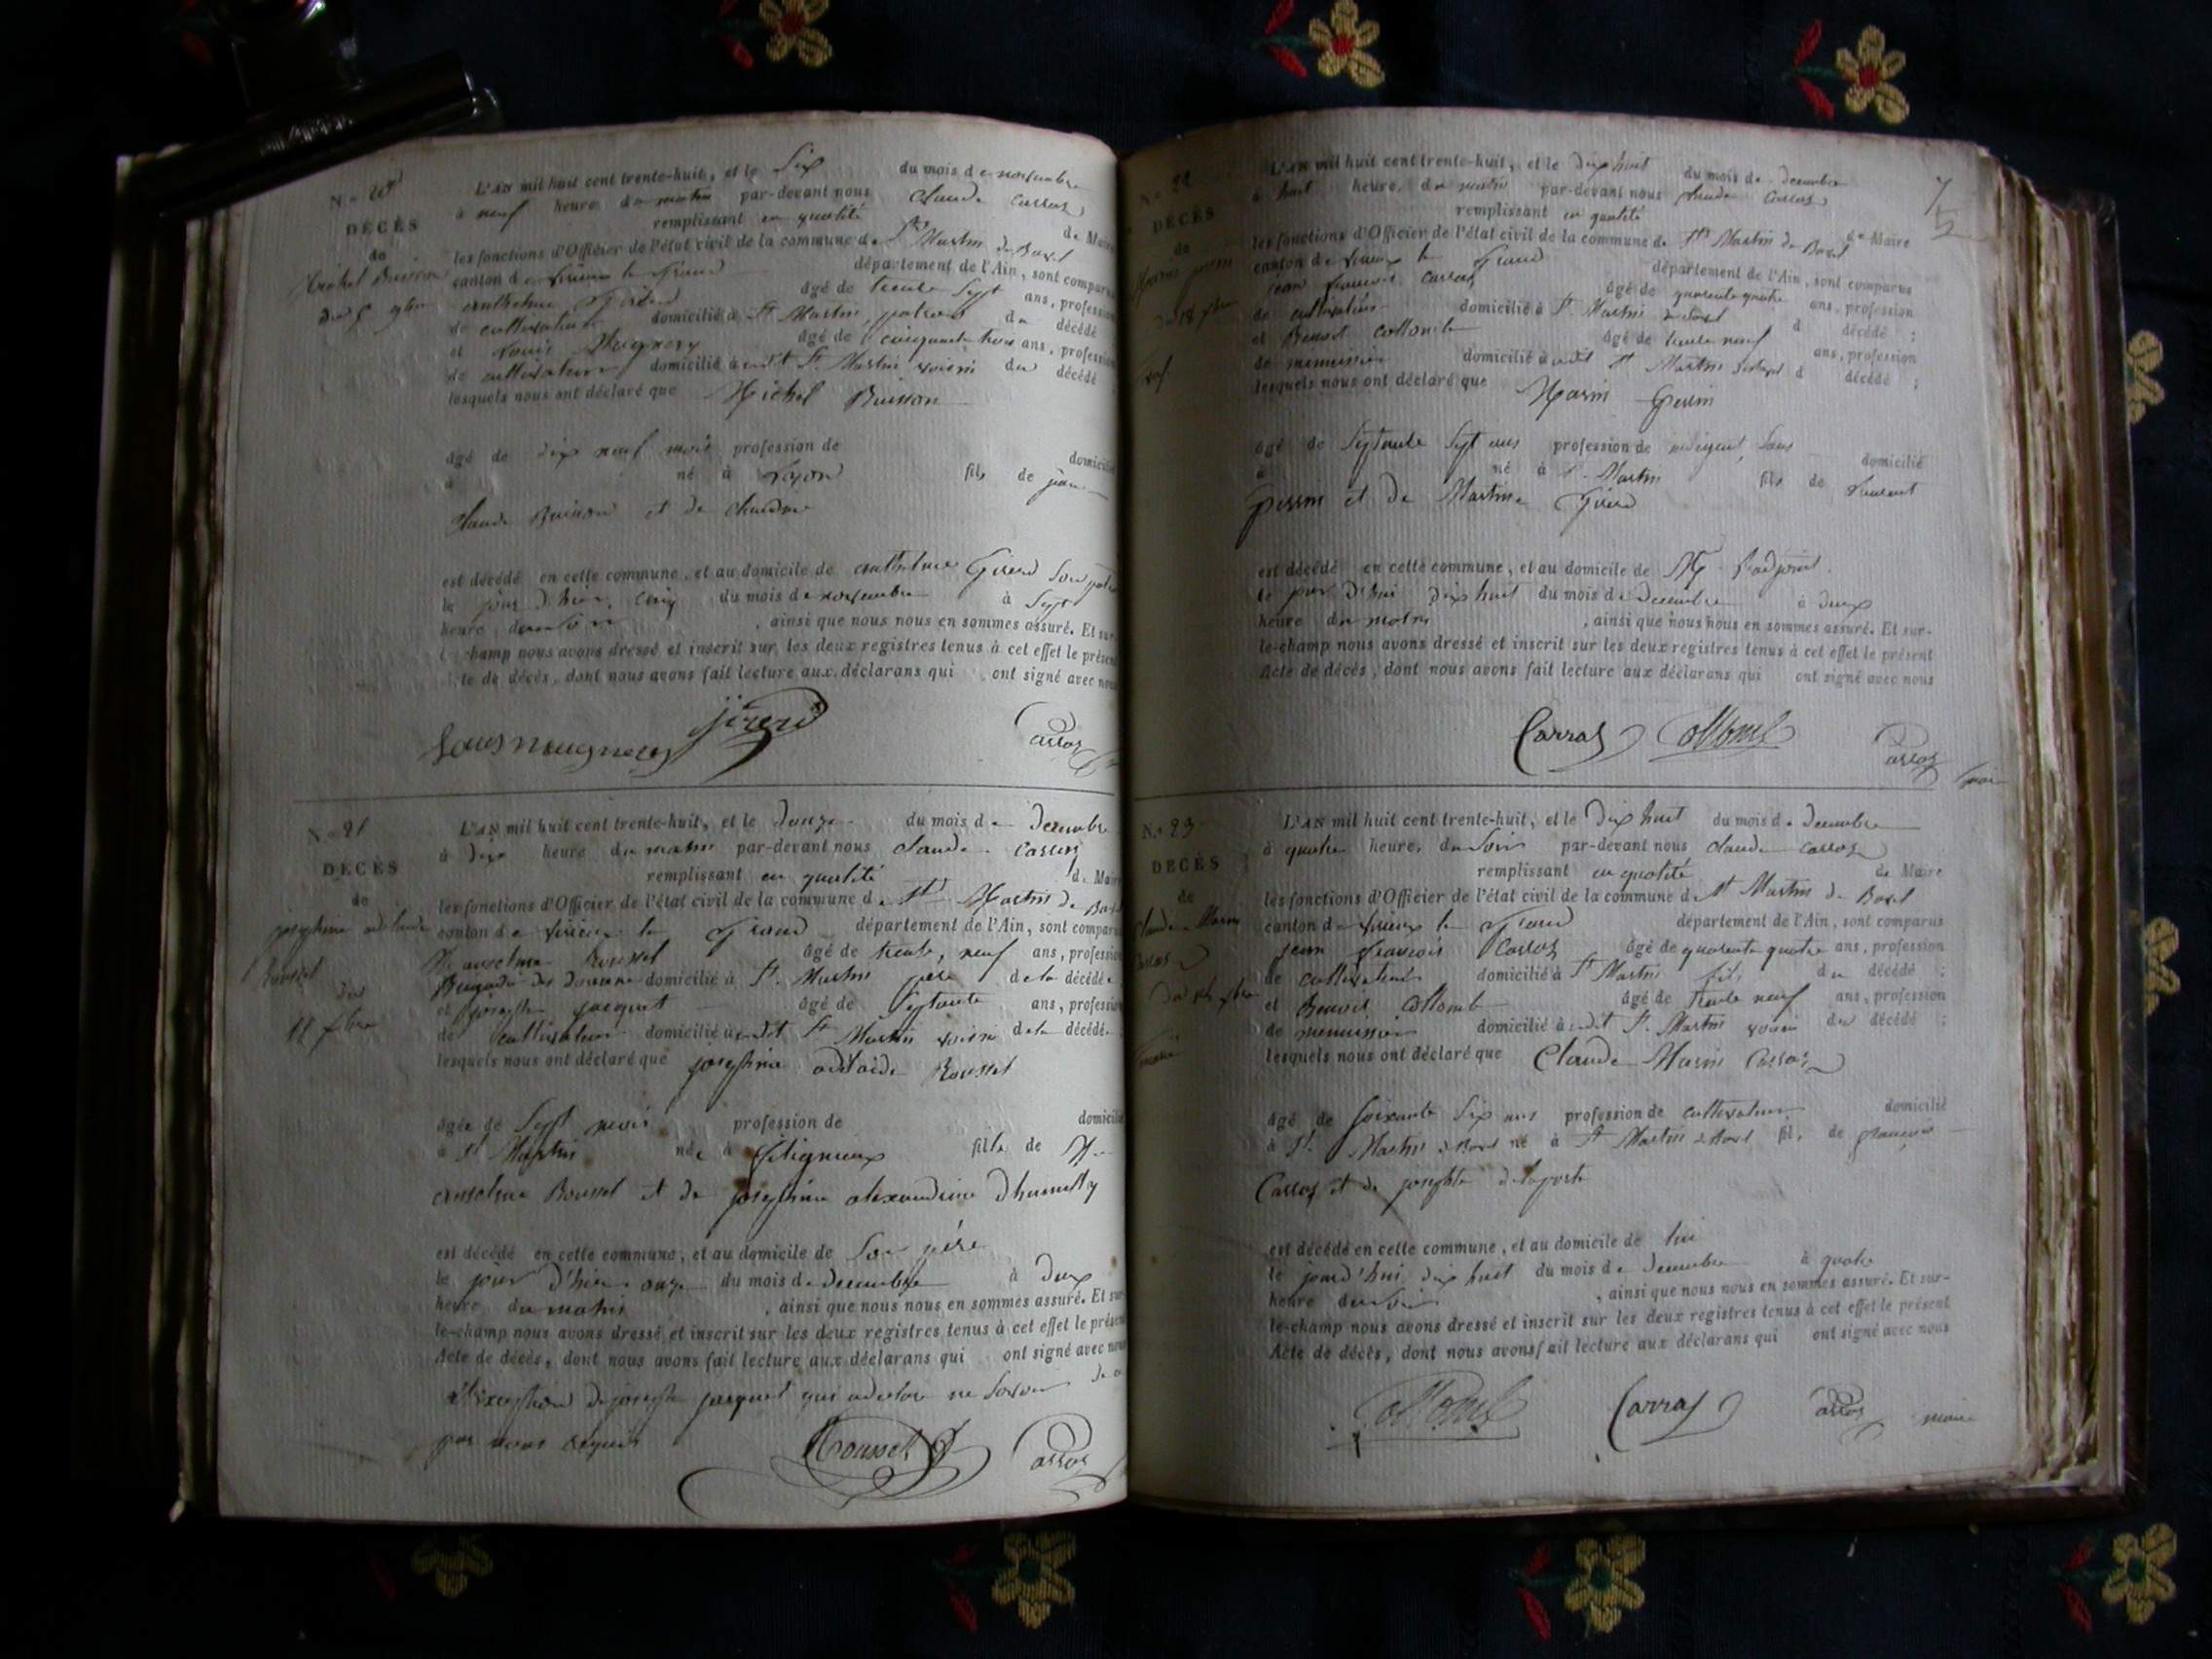 N.o 20
DÉCÈS
de
Michel Buisson
du 5 9bre
L'AN mil huit cent trente-huit, et le Six du mois de novembre
à neuf heure du matin par-devant nous Claude Carros
remplissant en qualité de Maire
les fonctions d'Officier de l'état civil de la commune de St Martin de Bavel
canton de Virieux le Grand département de l'Ain, sont comparus
anthelme Girerd âgé de trente sept ans, profession
de cultivateur domicilié à St Martin, patron du décédé
et Louis âgé de cinquante trois ans, profession
de cultivateur domicilié audit St Martin voisin du décédé
lesquels nous ont déclaré que Michel Buisson
âgé de dix neuf mois profession de domicilié
à né à Lyon fils de jean
Claude Buisson et de Claudine
est décédé en cette commune, et au domicile de anthelme Girerd Son patron
le jour d'hier, Cinq du mois de novembre à Sept
heure du Soir, ainsi que nous nous en sommes assuré. Et sur-
le-champ nous avons dressé et inscrit sur les deux registres tenus à cet effet le présent
Acte de décès, dont nous avons fait lecture aux déclarans qui ont signé avec nous
jirerd Carros
N.o 21
DÉCÈS
de
josephine adelaide
Roussel
du
11 Xbre
L'AN mil huit cent trente-huit, et le Douze du mois de Decembre
à Dix heure du matin par-devant nous Claude Carros
remplissant en qualité de Maire
les fonctions d'Officier de l'état civil de la commune de St Martin de Bavel
canton de Virieux le Grand département de l'Ain, sont comparus
M. anselme Roussel âgé de trente, neuf ans, profession
Brigadier des Douane domicilié à St. Martin père de la décédée
et joseph jacquet âgé de Septante ans, profession
de Cultivateur domicilié audit St Martin voisin de la décédée
lesquels nous ont déclaré que josephine adelaide Roussel
âgée de Sept mois profession de domicilié
à St Martin née à fille de M.
anselme Roussel et de josephine alexandrine
est décédé en cette commune, et au domicile de Son père
le jour d'hier onze du mois de Decembre à Deux
heure du matin, ainsi que nous nous en sommes assuré. Et sur-
le-champ nous avons dressé et inscrit sur les deux registres tenus à cet effet le présent
Acte de décès, dont nous avons fait lecture aux déclarans qui ont signé avec nous
à l'exception de joseph jacquet qui a declare ne Savoir de ce
par nous requis
Roussel Carros
N.o 22
DÉCÈS
de
Marin perrin
du 18 Xbre
L'AN mil huit cent trente-huit, et le Dix huit du mois de Decembre
à huit heure du matin par-devant nous Claude Carros
remplissant en qualité de Maire
les fonctions d'Officier de l'état civil de la commune de St Martin de Bavel
canton de Virieux le Grand département de l'Ain, sont comparus
jean françois Carros âgé de quarente quatre ans, profession
de cultivateur domicilié à St. Martin de Bavel d décédé;
et Benoit Collomb âgé de trente neuf ans, profession
de menuisier domicilié audit St Martin de Bavel d décédé;
lesquels nous ont déclaré que Marin Perrin
âgé de Septante Sept ans profession de indigent, Sans domicilié
à né à St. Martin fils de Laurent
perrin et de Martine Girerd
est décédé en cette commune, et au domicile de Mr l'adjoint.
le jour D'hui Dix huit du mois de Decembre à Deux
heure du matin, ainsi que nous nous en sommes assuré. Et sur-
le-champ nous avons dressé et inscrit sur les deux registres tenus à cet effet le présent
Acte de décès, dont nous avons fait lecture aux déclarans qui ont signé avec nous
Carras Collomb Carros maire
N.o 23
DÉCÈS
de
Claude Marin
Carros
L'AN mil huit cent trente-huit, et le Dix huit du mois de Decembre
à quatre heure, du Soir par-devant nous Claude Carros
remplissant en qualité de Maire
les fonctions d'Officier de l'état civil de la commune de St Martin de Bavel
canton de Virieux le Grand département de l'Ain, sont comparus
jean françois Carros âgé de quarente quatre ans, profession
de cultivateur domicilié à St Martin fils du décédé;
et Benoit Collomb âgé de trente neuf ans, profession
de menuisier domicilié audit St. Martin voisin du décédé;
lesquels nous ont déclaré que Claude Marin Carros
âgé de Soixante Six ans profession de cultivateur domicilié
à St. Martin de Bavel né à St Martin de Bavel fils de françois
Carros et de josephte delaporte
est décédé en cette commune, et au domicile de lui
le jourd'hui Dix huit du mois de Decembre à quatre
heure du Soir, ainsi que nous nous en sommes assuré. Et sur-
le-champ nous avons dressé et inscrit sur les deux registres tenus à cet effet le présent
Acte de décès, dont nous avons fait lecture aux déclarans qui ont signé avec nous
Collomb Carras Carros maire